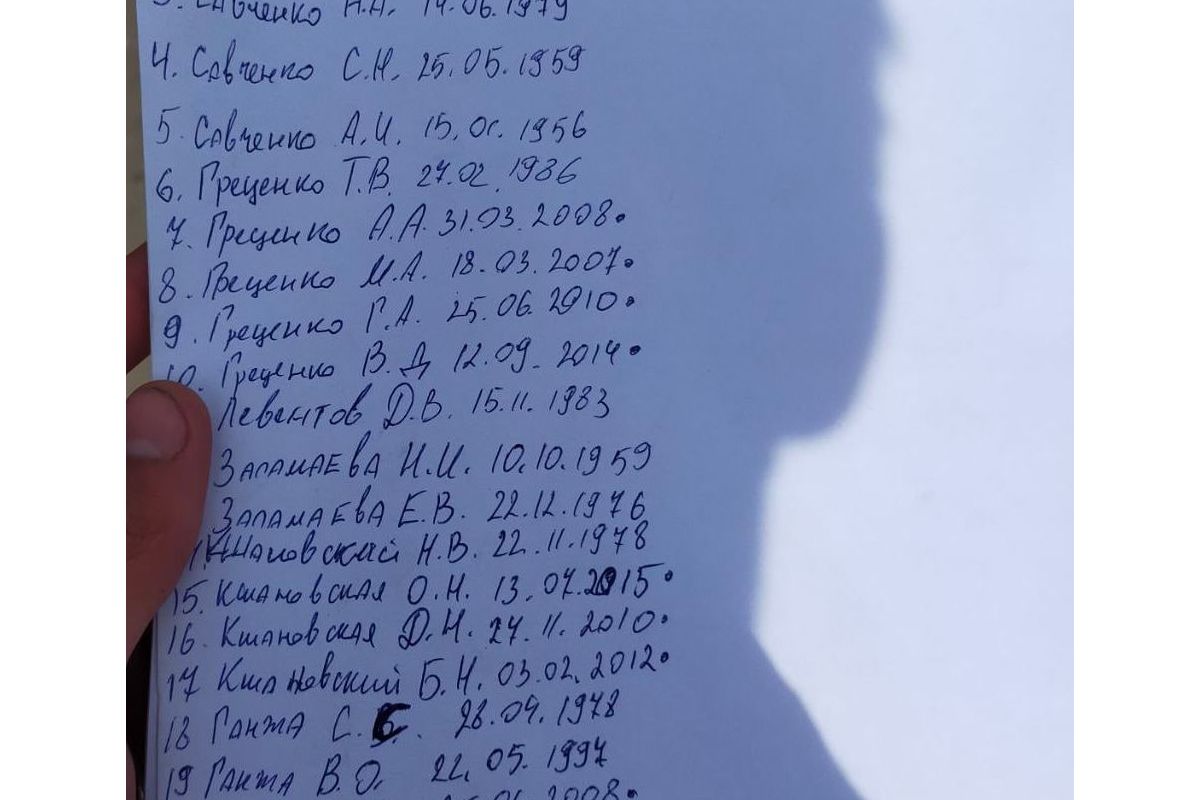 3. Савченко Н.А. 14.06.1979
4. Савченко С.Н. 25.05.1959
5. Савченко А.И. 15.01.1956
6. Греценко Т.В. 27.02.1986
7. Греценко А.А. 31.03.2008.
8. Греценко М.А. 18.03.2007.
9. Греценко Г.А. 25.06.2010.
10. Греценко В.Д. 12.09.2014.
Левентов Д.В. 15.11.1983
Запамаева Н.И. 10.10.1959
Запамаева Е.В. 22.12.1976
Кшановский Н.В. 22.11.1978
15. Кшановская О.Н. 13.07.2015.
16. Кшановская Д.Н. 27.11.2010.
17 Кшановский Б.Н. 03.02.2012.
18 Ганжа С. 28.04.1978
19 Ганжа В.О. 22.05.1997
2008.